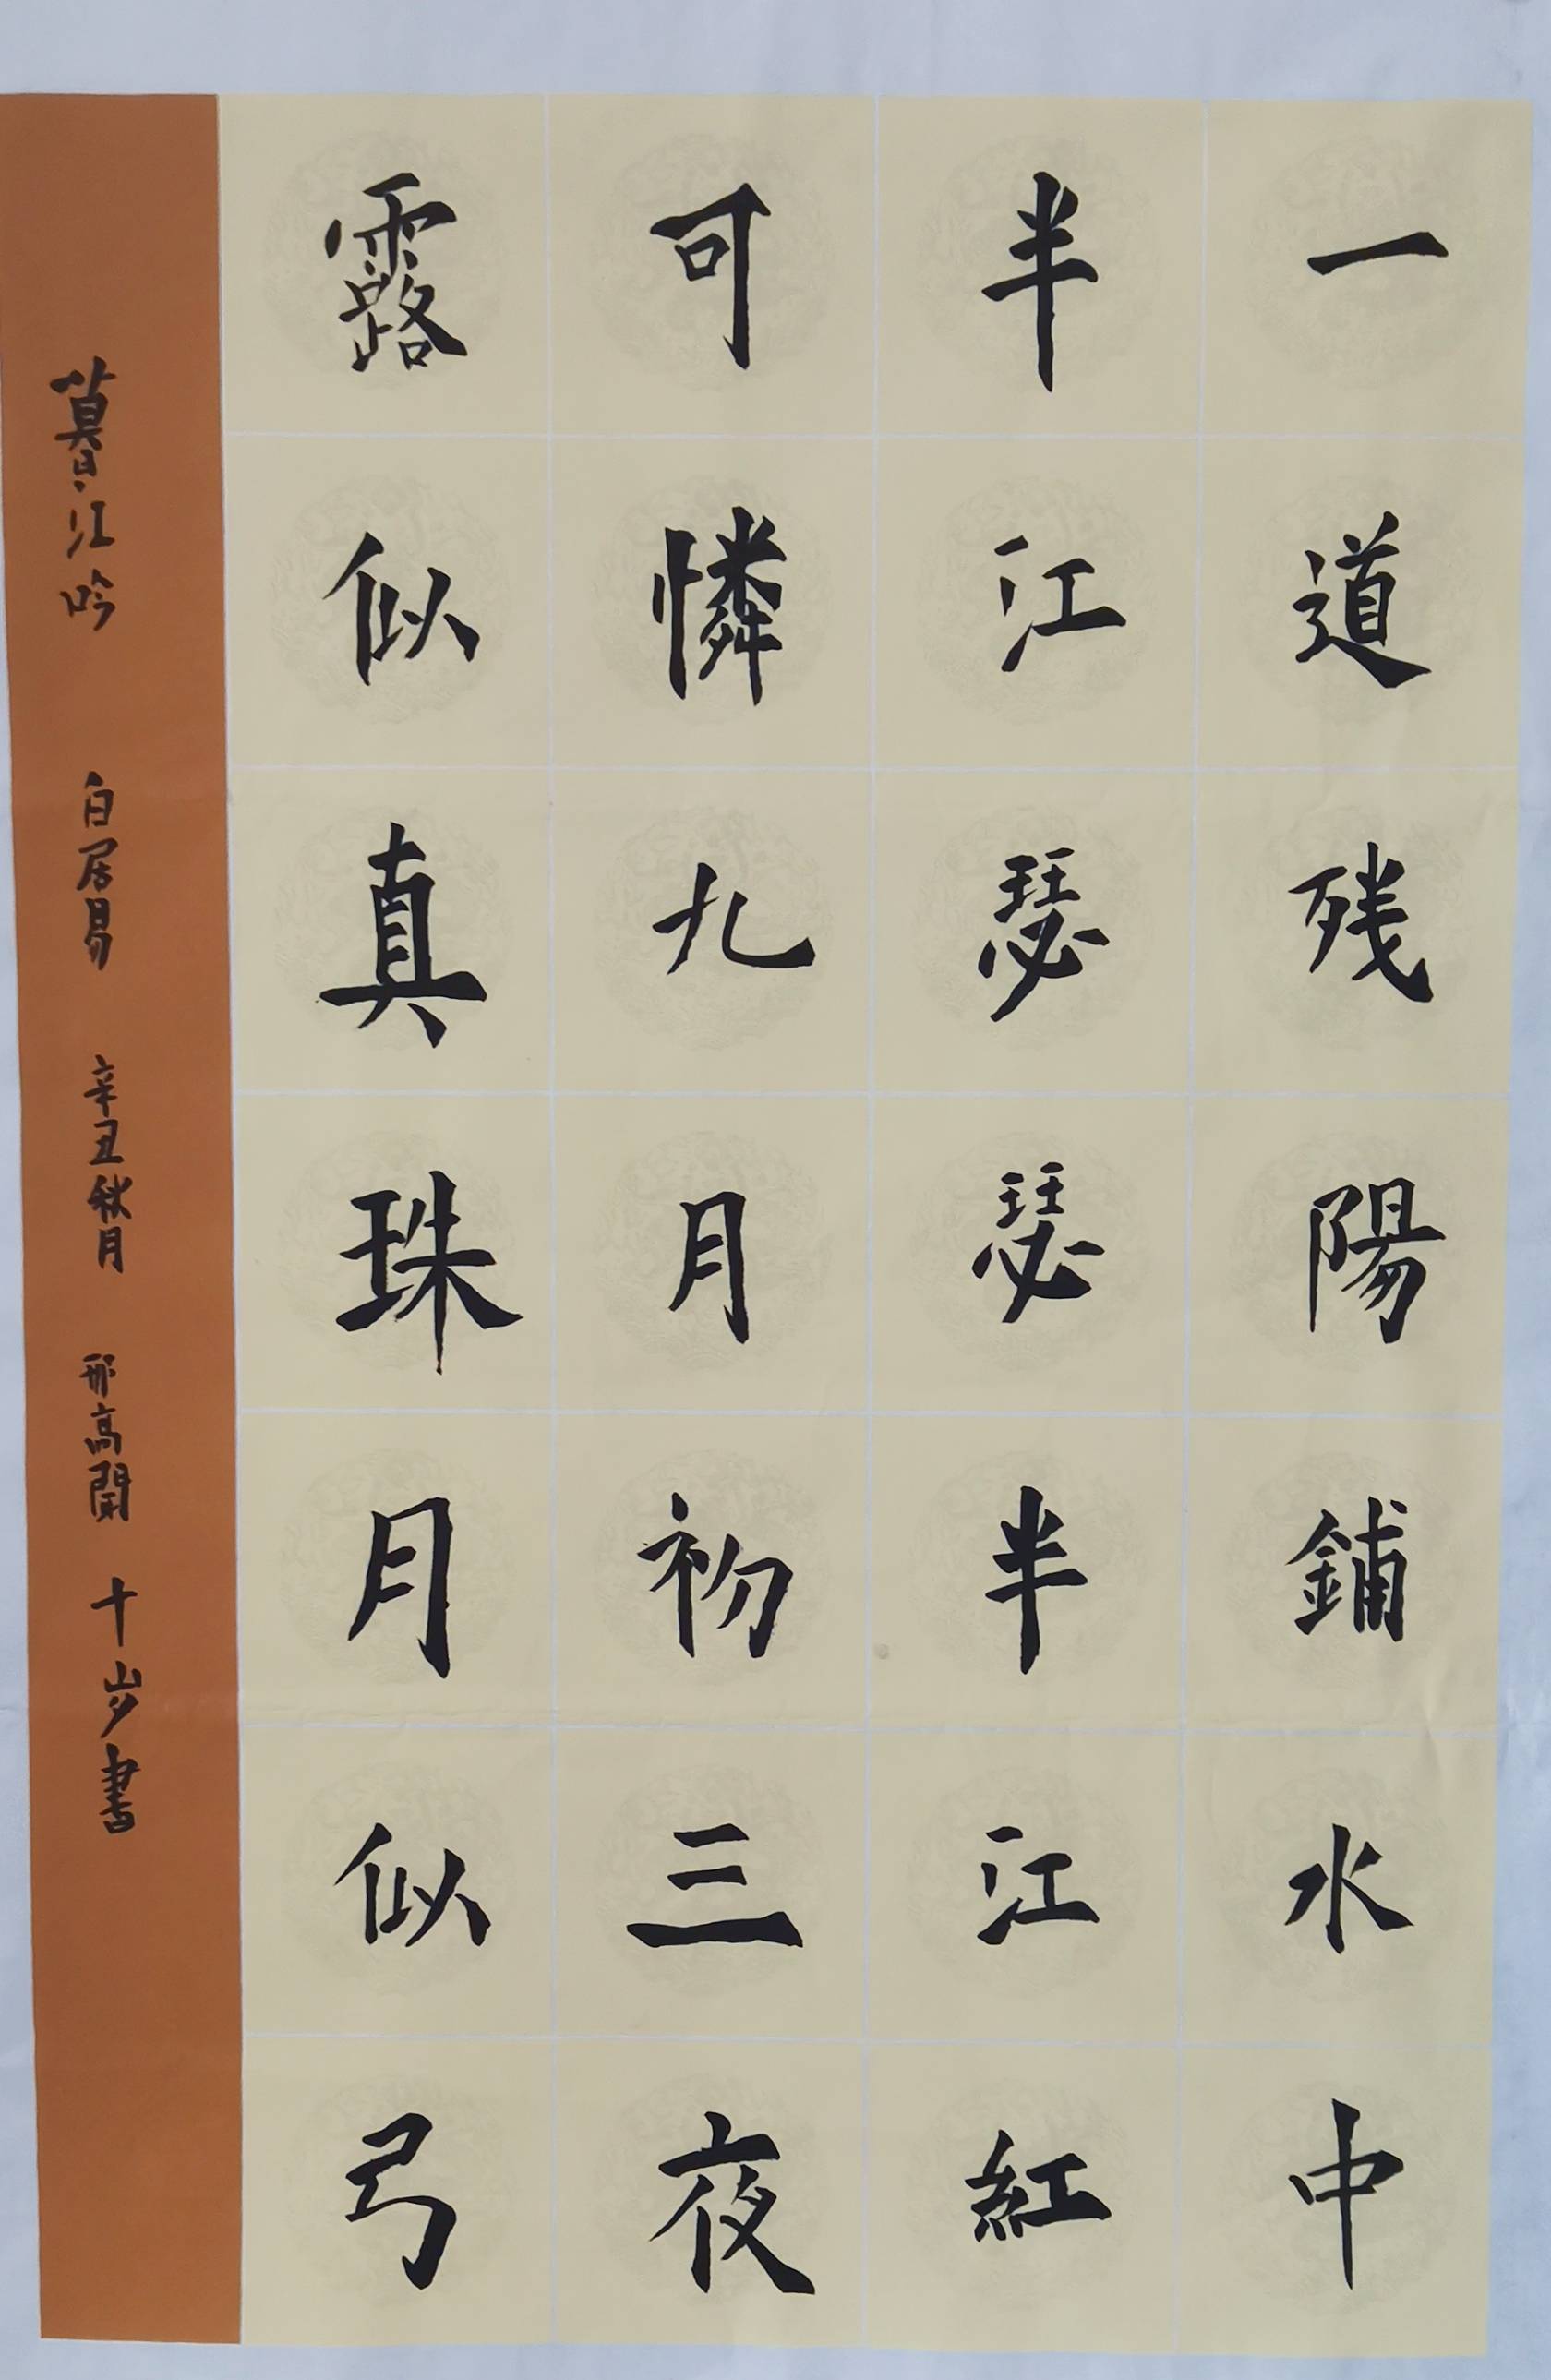 一道残陽鋪水中
半江瑟瑟半江紅
可憐九月初三夜
露似真珠月似弓
暮江吟 白居易 辛丑秋月 邢高闻 十岁書